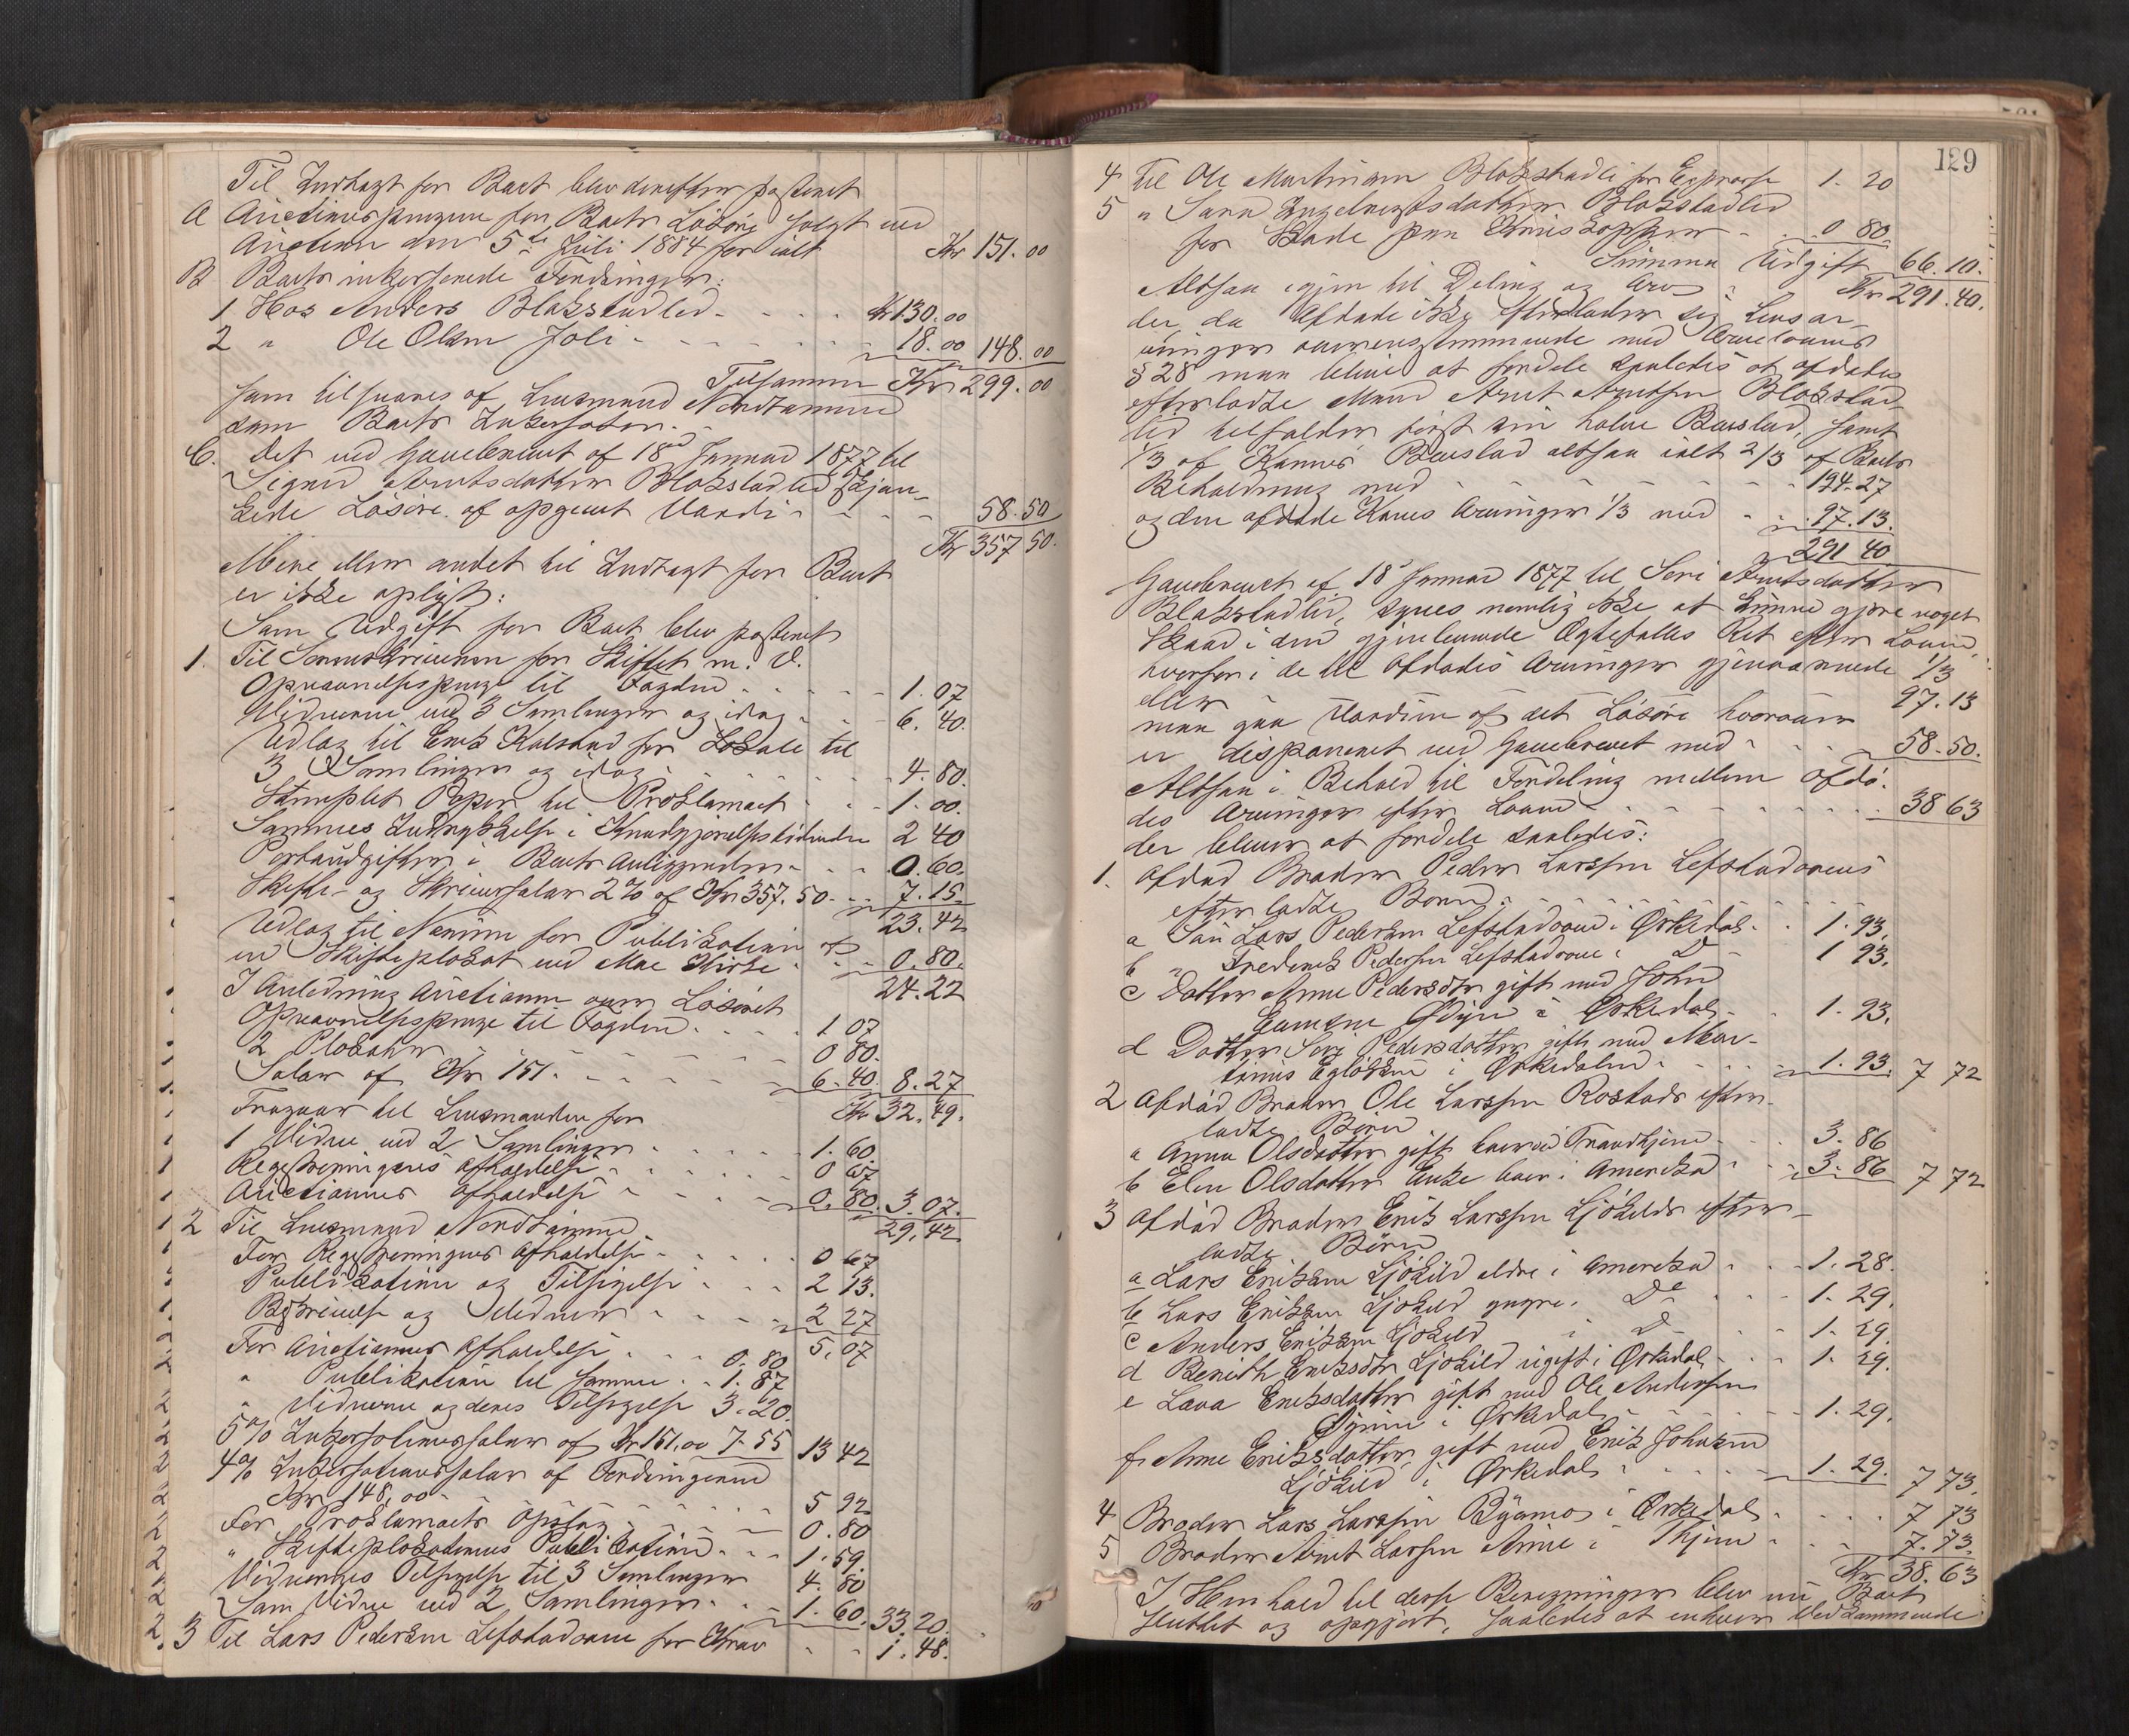 Til Indtægt for Boet blev derefter posteret
A Auctionspengene for Boets Løsøre solgt ved
Auction den 5te Juli 1884 for ialt Kr 151.00
B Boets inkasserede Fordringer:
1 Hos Anders Blokstadlid - - - - Kr 130.00
2 " Ole Olsen Joli - - - - - 18.00 148.00
Tilsammen Kr 299.00
som tilsvares af Lensmand Nordtømme
som Boets Inkassator.
C. det ved Gavebrevet af 18d Januar 1877 til
Sigrid Arntsdatter Blokstadlid skjæn-
kede Løsøre af opgivet Værdi - - - 58.50
Kr 357 50.
Mere eller andet til Indtægt for Boet
er ikke oplyst:
Som Udgift for Boet blev posteret
1. Til Sorenskriveren for Skiftet m. V.
Opnævnelsespenge til Fogden - - - 1.07
Vidnerne ved 3 Samlinger og idag - - 6.40.
Udlæg til Erik Kalstad for Lokale til
3 Samlinger og idag - - - - - 4.80.
Stemplet Papir til Proklamaet - - 1.00.
Sammes Indrykkelse i Kundgjørelsestidende 2 40
Portoudgifter i Boets Anliggender - - 0.60.
Skifte- og Skriversalær 2% af Kr 357.50 - - 7.15.
23.42
Udlæg til Nerim for Publikation af
en Skifteplakat ved Moe Kirke - - 0.80.
24.22
I Anledning Auctionen over Løsøret
Opnævnelsespenge til Fogden - - - 1 07
2 Plakater - - - - - - 0 80.
Salær af Kr 151. - - - - - 6.40. 8.27
Kr 32.49.
Fragaar til Lensmanden for
1 Vidne ved 2 Samlinger - - - - 1.60.
Registreringens Afholdelse - - - - 0 67
Auctionens Afholdelse - - - - 0.80. 3.07.
29.42
2 Til Lensmand Nordtømme
For Registreringens Afholdelse - - - 0 67
Publikation og Tilsigelse - - - 2 13.
Beskrivelse og Vidner - - - 2 27
5.07
For Auctionens Afholdelse - - - 0.80
" Publikation til samme - - 1.87
" Vidnerne og deres Tilsigelse 3.20.
5% Inkassationssalær af Kr 151,00 7.55 13 42
4% Inkassationssalær af Fordringerne
Kr 148,00 - - - - - 5 92
For Proklamaets Opslag - - - 0.80
" Skifteplakatens Publikation - - 1.59.
Vidnernes Tilsigelse til 3 Samlinger 4.80
Som Vidne ved 2 Samlinger - - 1.60. 33.20.
3 Til Lars Pedersen Lefstadaune for Krav - - 1.48.
129
4 Til Ole Martinsen Blokstadli for Expresse 1.20
5 " Sara Ingebrigtsdatter Blokstadlid
for Bade paa Kreiskopper - - 0 80.
Summa Udgift 66.10.
Altsaa igjen til Deling og Arv - Kr 291.40.
der, da Afdøde ikke efterlader sig Livsar-
vinger overensstemmende med Arvelovens
§ 28 maa blive at fordele saaledes at afdødes
efterladte Mand Arnt Arntsen Blokstad-
lid tilfalder først sin halve Boeslod, samt
1/3 af Konens Boeslod altsaa ialt 2/3 af Boets
Beholdning med - - - - - 194.27
og den afdøde Kones Arvinger 1/3 med - - 97.13.
291 40
Gavebrevet af 18d Januar 1877 til Seri Arntsdatter
Blokstadlid, synes nemlig ikke at kunne gjøre noget
Skaar i den gjenlevende Ægtefælles Ret efter Loven,
hvorfor i de til Afdødes Arvinger gjenværende 1/3
eller 97.13
maa gaa Værdien af det Løsøre hvorover
er disponeret ved Gavebrevet med - - 58.50.
Altsaa i Behold til Fordeling mellem Afdø-
des Arvinger efter Loven - - - - 38 63
der bliver at fordele saaledes:
1. Afdød Broder Peder Larssen Lefstadaunes
efterladte Børn: - - - -
a Søn Lars Pedersen Lefstadaune i Ørkedal - - 1.93.
b " Frederik Pedersen Lefstadaune i Do - 1 93.
c Datter Anne Pedersdtr gift med John
Evensen Ødyn i Ørkedal - - 1.93.
d Datter Seri Pedersdatter gift med Mor-
tinus Egløkken i Ørkedalen - - - 1.93. 7 72
2 Afdød Broder Ole Larssen Rostads efter-
ladte Børn
a Anna Olsdatter gift boer ved Trondhjem - - 3.86
b Elen Olsdatter Enke boer i Amerika - - 3.86 7 72
3 Afdød Broder Erik Larssen Ljøkelds efter-
ladte Børn
a Lars Eriksen Ljøkild eldre i Amerika - - 1.28.
b Lars Eriksen Ljøkild yngre i Do - - 1.29.
c Anders Eriksen Ljøkild i Do - - 1.29.
d Berith Eriksdtr Ljøkild ugift i Ørkedal - - 1.29.
e Lava Eriksdatter gift med Ole Andersen
Dynum i Ørkedal - - - 1.29.
f. Anne Eriksdatter gift med Erik Johnsen
Ljøkild i Ørkedal - - - 1.29. 7 73.
4 Broder Lars Larssen Byamo i Ørkedal - - - 7 73
5 Broder Arnt Larssen Aune i Hjem - - - 7.73.
Kr 38.63
I Henhold til disse Beregninger blev nu Boet
sluttet og opgjort, saaledes at enhver Vedkommende